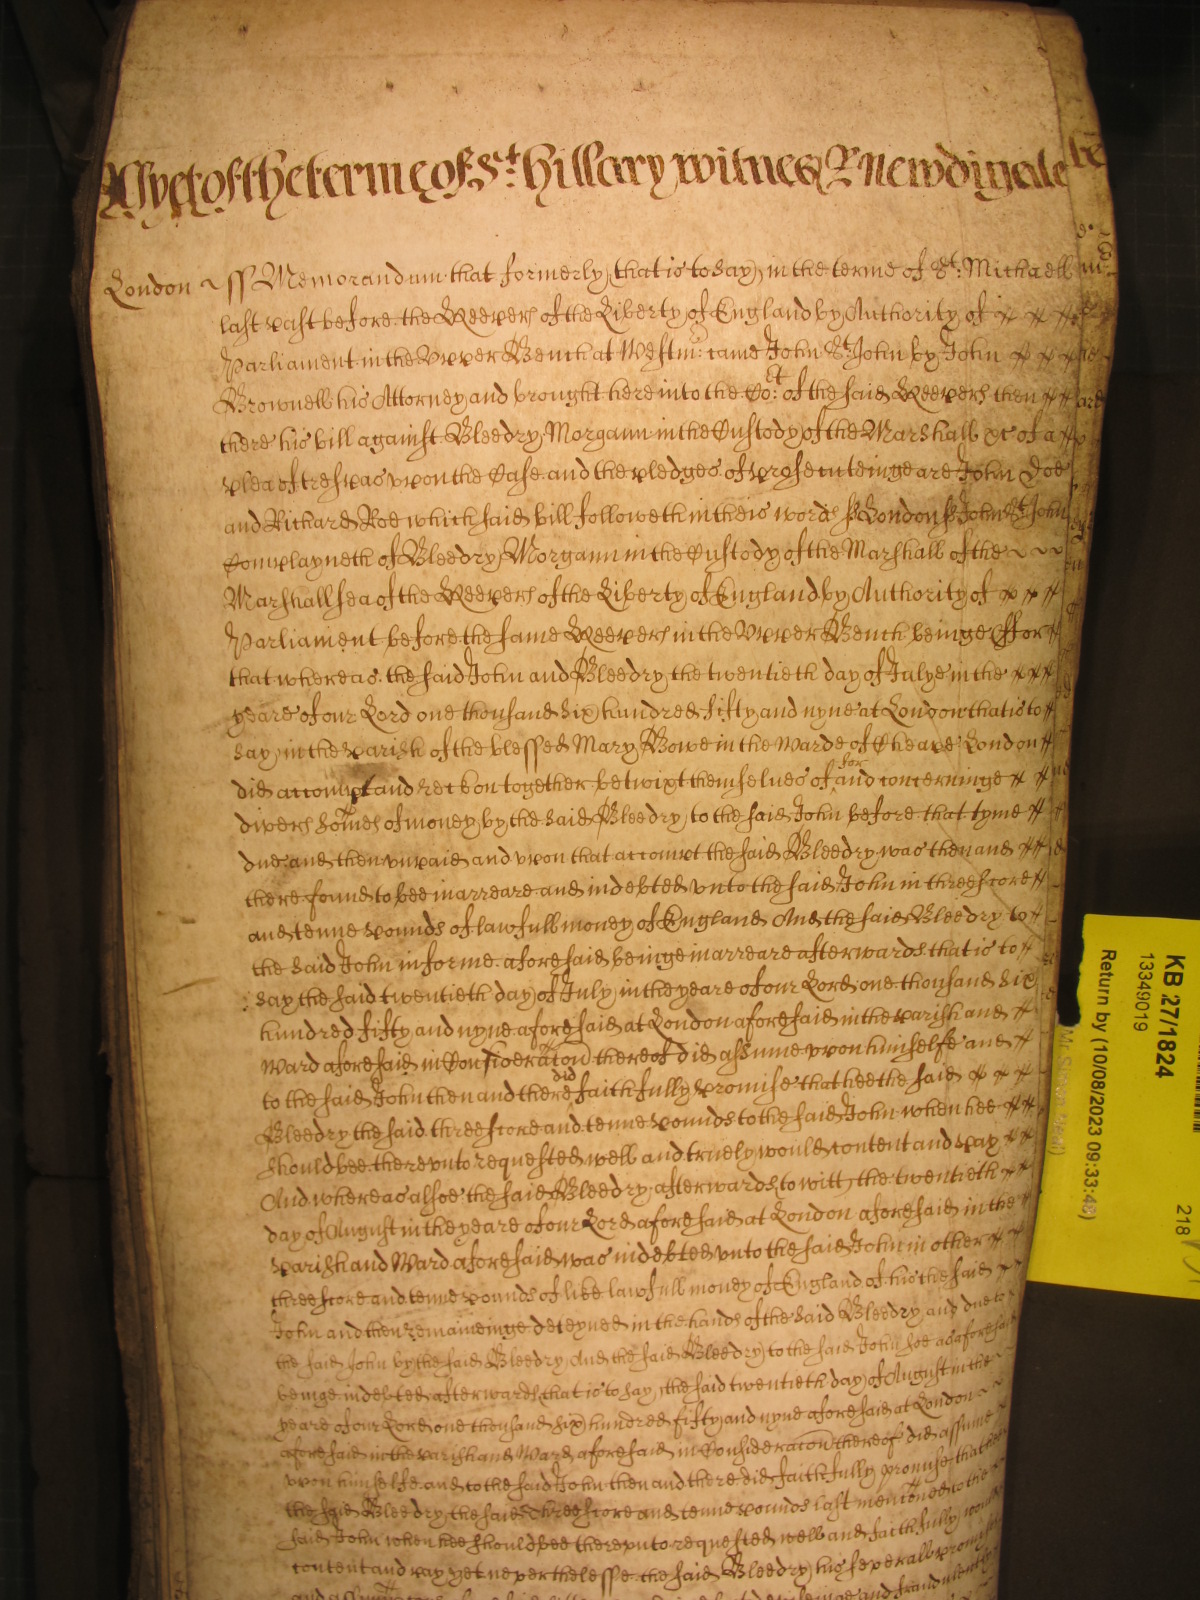 As yet of the terme of St. Hillary witnes R Newdigate
London ~ ss Memorandum that formerly, that is to say, in the terme of St: Michaell
last past before the Keepers of the Liberty of England by Authority of
Parliament in the Upper Bench at Westmr: came John St John by John
Brownell his Attorney and brought here into the Cot: of the said Keepers then
there his bill against Bleedry Morgann in the Custody of the Marshall &c of a
plea of trespas upon the Case and the pledges of prosecuteinge are John Doe
and Richard Roe which said bill followeth in theis words ss London ss John St John
Complayneth of Bleedry Morgann in the Custody of the Marshall of the ~ ~ ~
Marshallsea of the Keepers of the Liberty of England by Authority of
Parliament before the same Keepers in the Upper Bench beinge ffor
that whereas the said John and Bleedry the twentieth day of Julye in the
yeare of our Lord one thousand six hundred fifty and nyne at London that is to
say, in the parish of the blessed Mary Bowe in the Warde of Cheape London
did accompt and reckon together betwixt themselues of for and concerninge
divers somes of money by the said Bleedry to the said John before that tyme
due and then unpaid and upon that accompt the said Bleedry was then and
there found to bee in arreare and indebted unto the said John in threescore
and tenne pounds of lawfull money of England And the said Bleedry to
the said John in forme aforesaid beinge in arreare afterwards that is to
say the said twentieth day of July in the yeare of our Lord one thousand six
hundred fifty and nyne aforesaid at London aforesaid in the parish and
Ward aforesaid in Consideracon thereof did assume upon himselfe and
to the said John then and there did faithfully promise that hee the said
Bleedry the said threescore and tenne pounds to the said John when hee
should bee thereunto requested well and truely would content and pay
And whereas alsoe the said Bleedry afterwards to witt the twentieth
day of August in the yeare of our Lord aforesaid at London aforesaid in the
parish and Ward aforesaid was indebted unto the said John in other
threescore and tenne pounds of like lawfull money of England of his the said
John and then remaineinge deteyned in the hands of the said Bleedry and due to
the said John by the said Bleedry And the said Bleedry to the said John soe as aforesaid
beinge indebted afterwards that is to say, the said twentieth day of August in the
yeare of our Lord one thousand six hundred fifty and nyne aforesaid at London
aforesaid in the parish and Ward aforesaid in Consideracon thereof did assume
upon himselfe and to the said John then and there did faithfully promise that hee
the said Bleedry the said threescore and tenne pounds last mentoned to the
said John when hee should bee thereunto requested well and faithfully would
content and pay yet neverthelesse the said Bleedry his severall promises
KB 27/1824
13349019
218
Return by (10/08/2023 09:33:48)